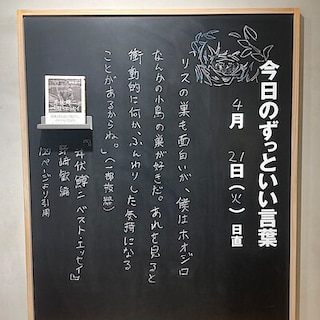 今日のずっといい言葉
4月21日(火)日直
「リスの巣も面白いが、僕はホオジロ
なんかの小鳥の巣が好きだ。あれを見ると
衝動的に何か、ふんわりした気持になる
ことがあるからね。」(一部抜粋)
『井伏鱒二 ベスト・エッセイ』
野崎歓 編
ページより引用